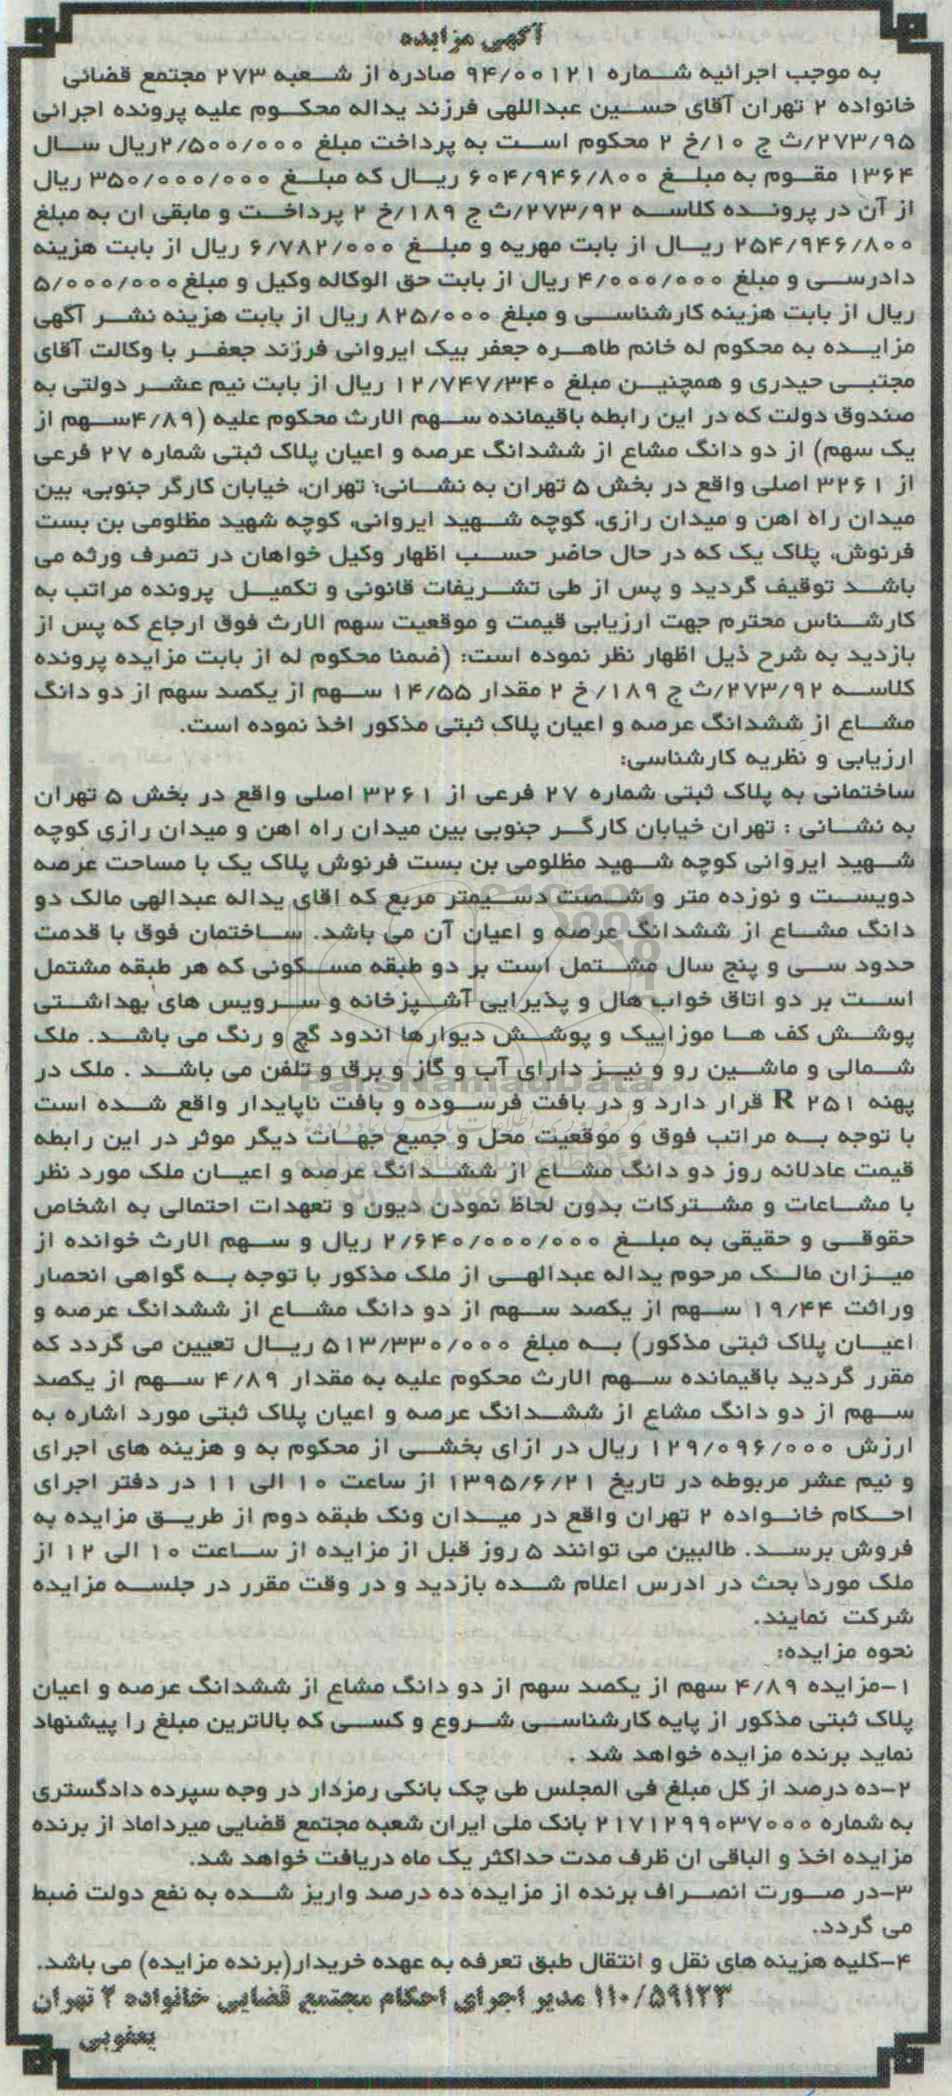 آگهی مزایده
به موجب اجرائیه شماره ۹۴/۰۰۱۲۱ صادره از شعبه ۲۷۳ مجتمع قضائی
خانواده ۲ تهران آقای حسین عبداللهی فرزند یداله محکوم علیه پرونده اجرائی
۲۷۳/۹۵/ث ج ۱۰/خ ۲ محکوم است به پرداخت مبلغ ۲/۵۰۰/۰۰۰ریال سال
۱۳۶۴ مقوم به مبلغ ۶۰۴/۹۴۶/۸۰۰ ریال که مبلغ ۳۵۰/۰۰۰/۰۰۰ ریال
از آن در پرونده کلاسه ۲۷۳/۹۲/ث ج ۱۸۹/خ ۲ پرداخت و مابقی ان به مبلغ
۲۵۴/۹۴۶/۸۰۰ ریال از بابت مهریه و مبلغ ۶/۷۸۲/۰۰۰ ریال از بابت هزینه
دادرسی و مبلغ ۴/۰۰۰/۰۰۰ ریال از بابت حق الوکاله وکیل و مبلغ۵/۰۰۰/۰۰۰
ریال از بابت هزینه کارشناسی و مبلغ ۸۲۵/۰۰۰ ریال از بابت هزینه نشر آگهی
مزایده به محکوم له خانم طاهره جعفر بیک ایروانی فرزند جعفر با وکالت آقای
مجتبی حیدری و همچنین مبلغ ۱۲/۷۴۷/۳۴۰ ریال از بابت نیم عشر دولتی به
صندوق دولت که در این رابطه باقیمانده سهم الارث محکوم علیه (۴/۸۹سهم از
یک سهم) از دو دانگ مشاع از ششدانگ عرصه و اعیان پلاک ثبتی شماره ۲۷ فرعی
از ۳۲۶۱ اصلی واقع در بخش ۵ تهران به نشانی؛ تهران، خیابان کارگر جنوبی، بین
میدان راه اهن و میدان رازی، کوچه شهید ایروانی، کوچه شهید مظلومی بن بست
فرنوش، پلاک یک که در حال حاضر حسب اظهار وکیل خواهان در تصرف ورثه می
باشد توقیف گردید و پس از طی تشریفات قانونی و تکمیل پرونده مراتب به
کارشناس محترم جهت ارزیابی قیمت و موقعیت سهم الارث فوق ارجاع که پس از
بازدید به شرح ذیل اظهار نظر نموده است: (ضمنا محکوم له از بابت مزایده پرونده
کلاسه ۲۷۳/۹۲/ث ج ۱۸۹/ خ ۲ مقدار ۱۴/۵۵ سهم از یکصد سهم از دو دانگ
مشاع از ششدانگ عرصه و اعیان پلاک ثبتی مذکور اخذ نموده است.
ارزیابی و نظریه کارشناسی:
ساختمانی به پلاک ثبتی شماره ۲۷ فرعی از ۳۲۶۱ اصلی واقع در بخش ۵ تهران
به نشانی : تهران خیابان کارگر جنوبی بین میدان راه اهن و میدان رازی کوچه
شهید ایروانی کوچه شهید مظلومی بن بست فرنوش پلاک یک با مساحت عرصه
دویست و نوزده متر و شصت دسیمتر مربع که اقای یداله عبدالهی مالک دو
دانگ مشاع از ششدانگ عرصه و اعیان آن می باشد. ساختمان فوق با قدمت
حدود سی و پنج سال مشتمل است بر دو طبقه مسکونی که هر طبقه مشتمل
است بر دو اتاق خواب هال و پذیرایی آشپزخانه و سرویس های بهداشتی
پوشش کف ها موزاییک و پوشش دیوارها اندود گچ و رنگ می باشد. ملک
شمالی و ماشین رو و نیز دارای آب و گاز و برق و تلفن می باشد . ملک در
پهنه R ۲۵۱ قرار دارد و در بافت فرسوده و بافت ناپایدار واقع شده است
با توجه به مراتب فوق و موقعیت محل و جمیع جهات دیگر موثر در این رابطه
قیمت عادلانه روز دو دانگ مشاع از ششدانگ عرصه و اعیان ملک مورد نظر
با مشاعات و مشترکات بدون لحاظ نمودن دیون و تعهدات احتمالی به اشخاص
حقوقی و حقیقی به مبلغ ۲/۶۴۰/۰۰۰/۰۰۰ ریال و سهم الارث خوانده از
میزان مالک مرحوم یداله عبدالهی از ملک مذکور با توجه به گواهی انحصار
وراثت ۱۹/۴۴ سهم از یکصد سهم از دو دانگ مشاع از ششدانگ عرصه و
اعیان پلاک ثبتی مذکور) به مبلغ ۵۱۳/۳۳۰/۰۰۰ ریال تعیین می گردد که
مقرر گردید باقیمانده سهم الارث محکوم علیه به مقدار ۴/۸۹ سهم از یکصد
سهم از دو دانگ مشاع از ششدانگ عرصه و اعیان پلاک ثبتی مورد اشاره به
ارزش ۱۲۹/۰۹۶/۰۰۰ ریال در ازای بخشی از محکوم به و هزینه های اجرای
و نیم عشر مربوطه در تاریخ ۱۳۹۵/۶/۲۱ از ساعت ۱۰ الی ۱۱ در دفتر اجرای
احکام خانواده ۲ تهران واقع در میدان ونک طبقه دوم از طریق مزایده به
فروش برسد. طالبین می توانند ۵ روز قبل از مزایده از ساعت ۱۰ الی ۱۲ از
ملک مورد بحث در ادرس اعلام شده بازدید و در وقت مقرر در جلسه مزایده
شرکت نمایند.
نحوه مزایده:
۱-مزایده ۴/۸۹ سهم از یکصد سهم از دو دانگ مشاع از ششدانگ عرصه و اعیان
پلاک ثبتی مذکور از پایه کارشناسی شروع و کسی که بالاترین مبلغ را پیشنهاد
نماید برنده مزایده خواهد شد .
۲-ده درصد از کل مبلغ فی المجلس طی چک بانکی رمزدار در وجه سپرده دادگستری
به شماره ۲۱۷۱۲۹۹۰۳۷۰۰۰ بانک ملی ایران شعبه مجتمع قضایی میرداماد از برنده
مزایده اخذ و الباقی ان ظرف مدت حداکثر یک ماه دریافت خواهد شد.
۳-در صورت انصراف برنده از مزایده ده درصد واریز شده به نفع دولت ضبط
می گردد.
۴-کلیه هزینه های نقل و انتقال طبق تعرفه به عهده خریدار(برنده مزایده) می باشد.
۱۱۰/۵۹۱۲۳ مدیر اجرای احکام مجتمع قضایی خانواده ۲ تهران
یعقوبی
ParsNamadData